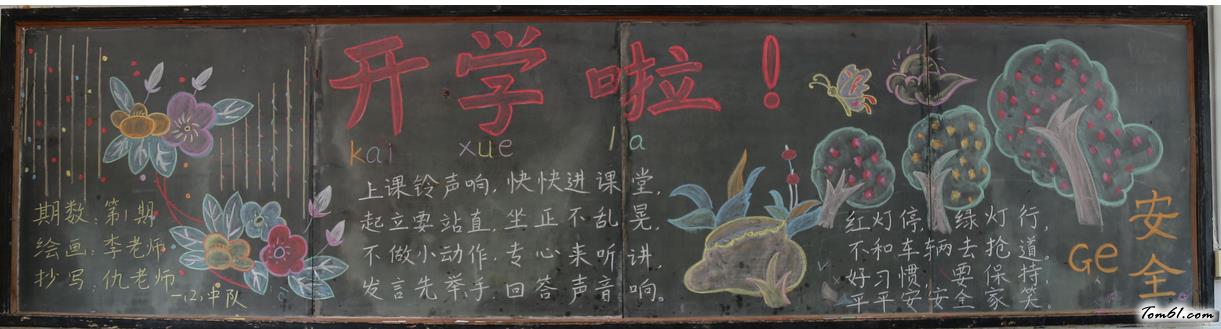 开学啦！
kai xue la
上课铃声响，快快进课堂，
起立要站直，坐正不乱晃，
不做小动作，专心来听讲，
发言先举手，回答声音响。
期数：第1期
绘画：李老师
抄写：仇老师
一、2）中队
红灯停，绿灯行，
不和车辆去抢道。
好习惯，要保持，
平平安安全家笑。
安全
Ge
Tom61.com